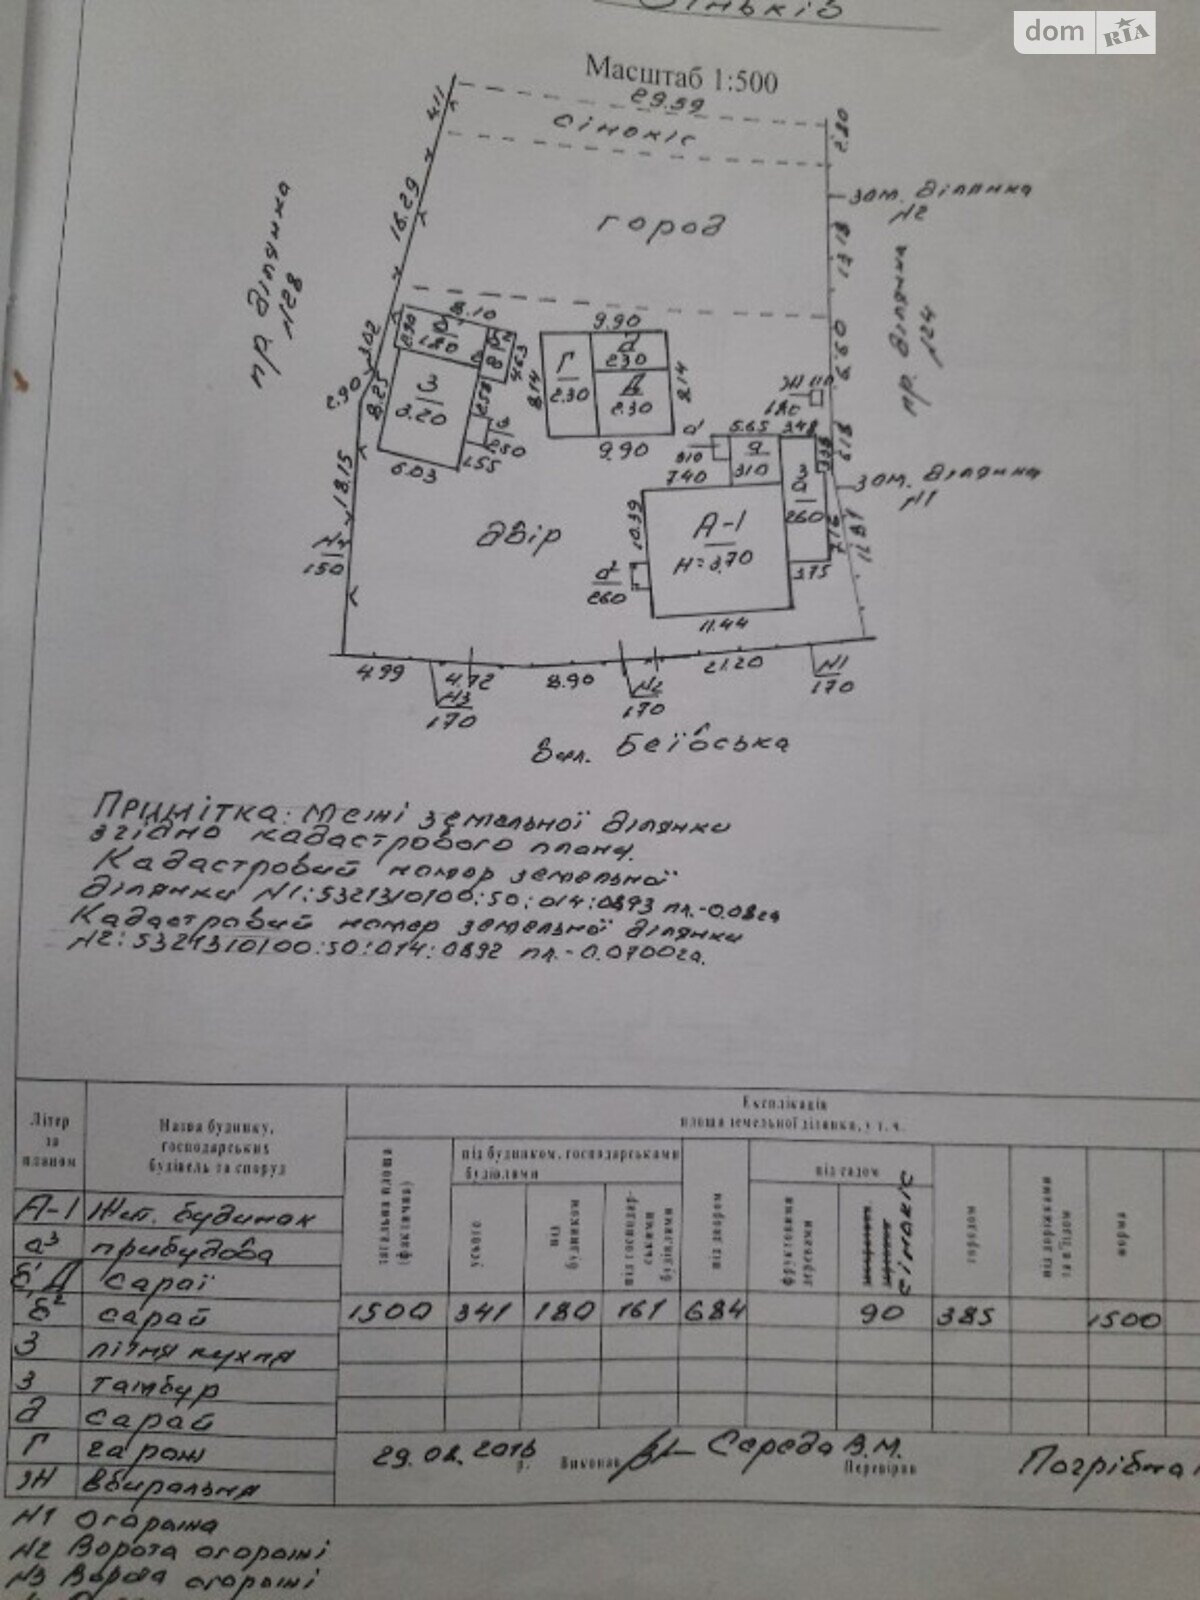 dom RIA
Масштаб 1:500
29.59
сінокіс
4.11
зем. ділянка
№2
16.29
город
13.13
пр. ділянка
№128
8.10
9.90
2.90
1.80
4.63
3.02
2.90
8.25
З
2.20
2.58
з
2.50
1.55
6.03
8.14
Г
2.30
д
2.30
Д
2.30
8.14
9.90
Ж
5.65
3.48
310
310
7.40
зем. ділянка
№1
18.15
10.39
А-1
Н=3.70
260
двір
№4
150
260
3.75
11.44
4.99
4.72
8.90
21.20
№3
170
№2
170
№1
170
Примітка: Межі земельної ділянки
згідно кадастрового плану.
Кадастровий номер земельної
ділянки №1:5321310100:50:014:0893 пл.-0.08га
Кадастровий номер земельної ділянки
№2:5321310100:50:014:0892 пл.-0.0700га.
Літер за планом
Назва будинку, господарських будівель та споруд
Експлікація
площа земельної ділянки, у т. ч.
загальна площа (фактична)
під будинком, господарськими будівлями
усього
під будинком
під господарськими будівлями
під двором
під садом
фруктовими деревами
сінокіс
городом
під доріжками та в'їздом
норма
А-1 Жит. будинок
а³ прибудова
б¹, Д сараї
б² сарай
1500 341 180 161 684 90 385 1500
З літня кухня
з тамбур
д сарай
Г гараж
Ж вбиральня
р. Виконав Середа В.М.
Перевірив
№1 Огорожа
№2 Ворота огорожі
№3 Ворота огорожі